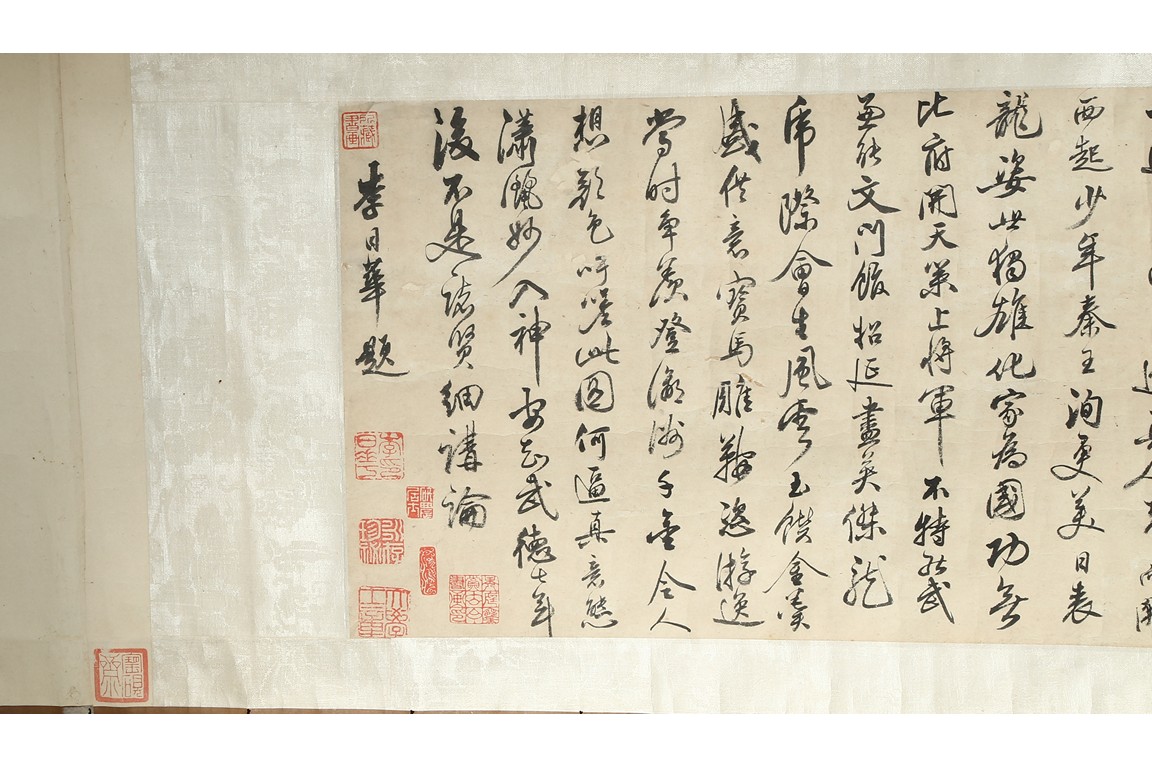 西起少年秦王洵更美日表
龍姿此獨雄化家為國功無
比府開天策上將軍不特能武
能文門館招延盡英傑龍
虎際會生風雲玉饌金漿
盛供意寶馬雕鞍恣游逸
當時爭羨登瀛洲千令人
想顏色吁嗟此圖何逼真意態
瀟灑妙入神要知武德七年
後不是諸賢細講論
李日華題
寶硯齋